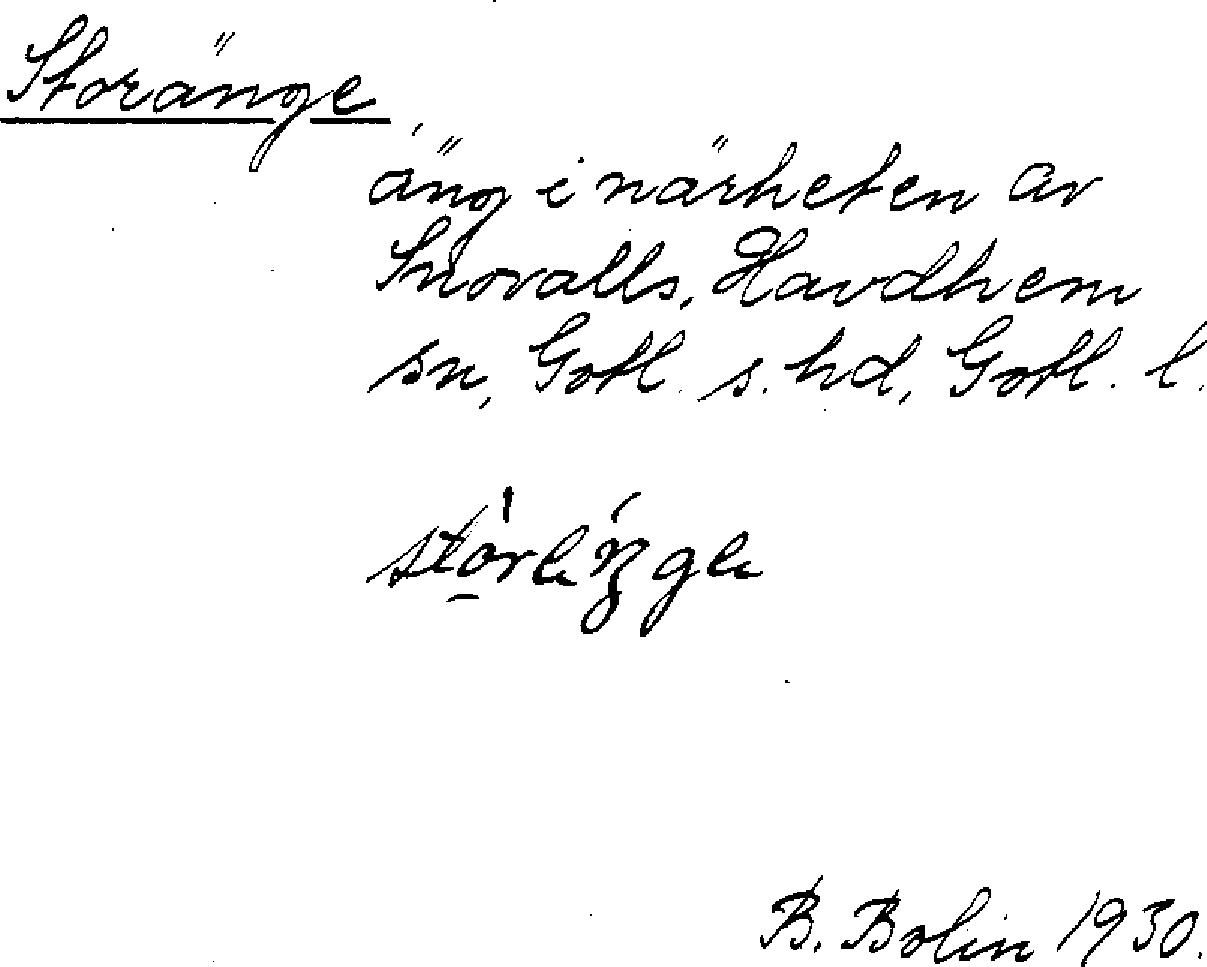 Storänge
äng i närheten av
Snovalls, Havdhem
sn, Gotl. s. hd, Gotl. l.
B. Bolin 1930.